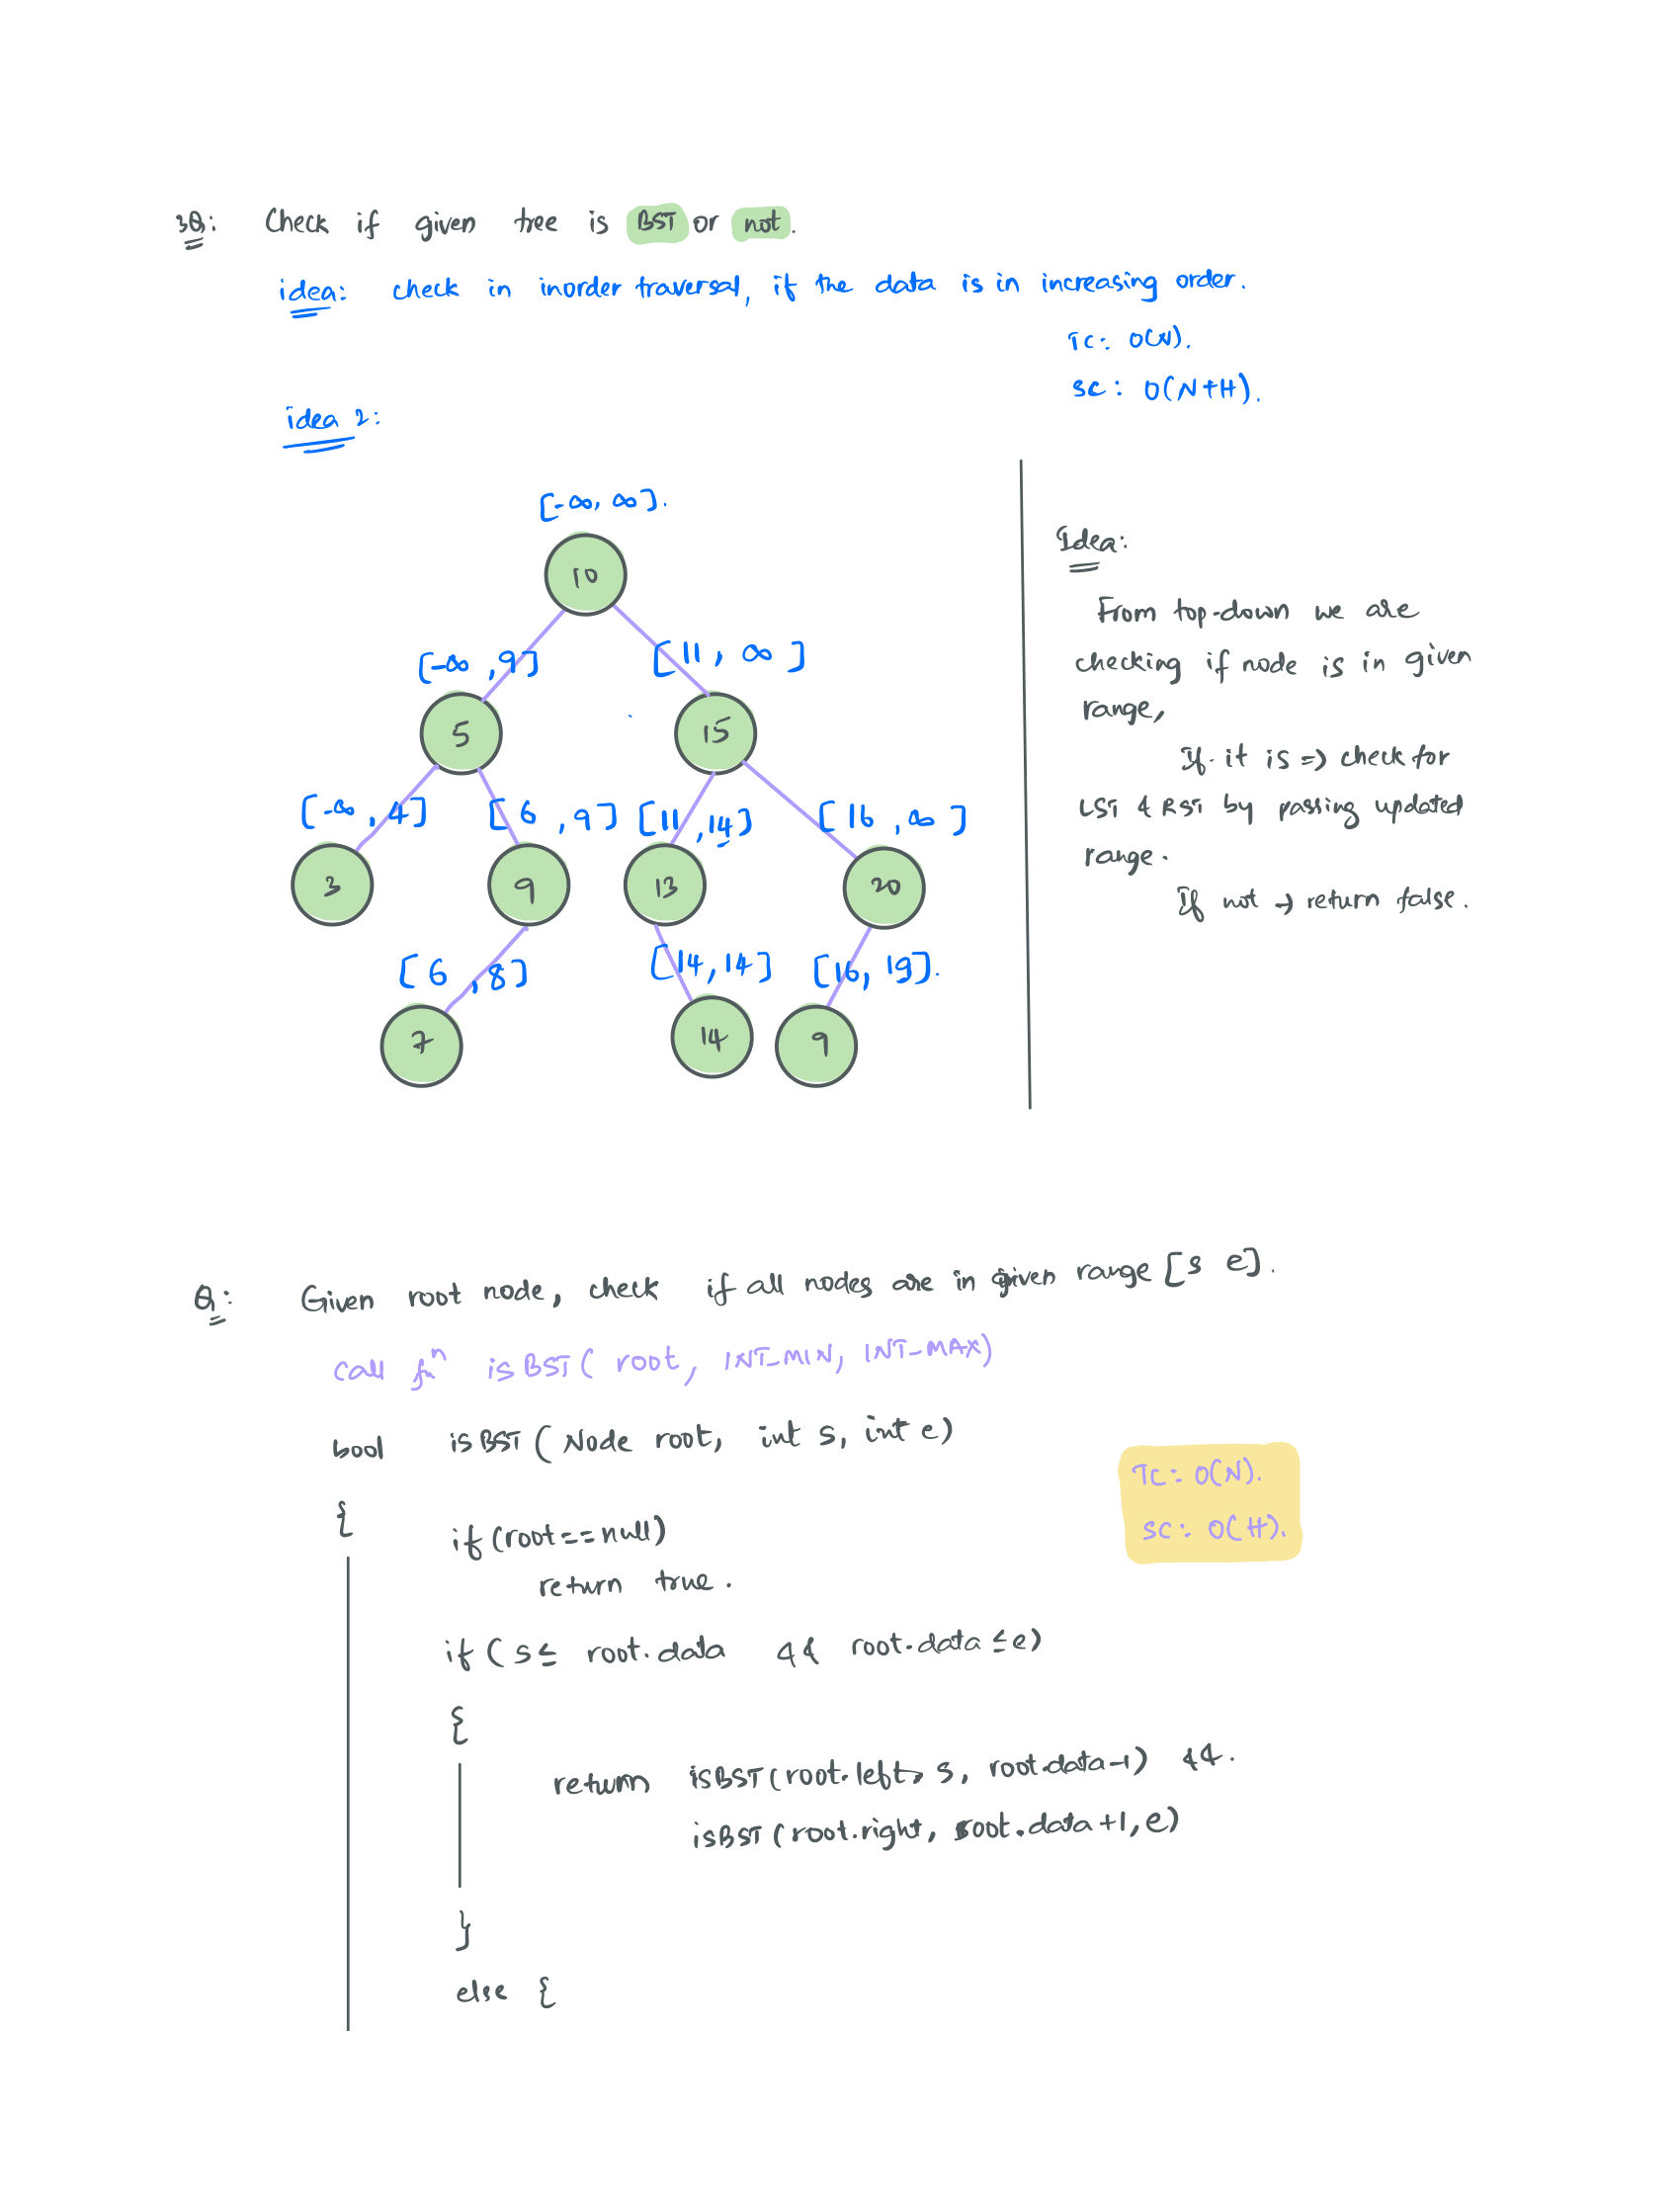 3Q: Check if given tree is BST or not.
idea: check in inorder traversal, if the data is in increasing order.
TC: O(N).
SC: O(N+H).
idea 2:
[-∞, ∞].
10
[-∞, 9] [11, ∞]
5 15
[-∞, 4] [6, 9] [11, 14] [16, ∞]
3 9 13 20
[6, 8] [14, 14] [16, 19].
7 14 9
Idea:
From top-down we are
checking if node is in given
range,
If it is => check for
LST & RST by passing updated
range.
If not → return false.
Q: Given root node, check if all nodes are in given range [s e].
call fnⁿ isBST( root, INT-MIN, INT-MAX)
bool isBST( Node root, int s, int e)
TC: O(N).
SC: O(H).
{ if (root == null)
return true.
if ( s ≤ root.data && root.data ≤ e)
{
return isBST(root.left, s, root.data-1) &&.
isBST(root.right, root.data+1, e)
}
else {